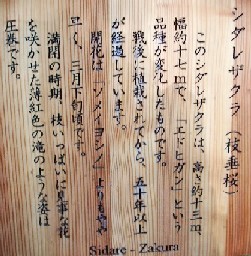 シダレザクラ（枝垂桜）
このシダレザクラは、高さ約十三m、
幅約十七mで、「エドヒガン」という
品種が変化したものです。
戦後に植栽されてから、五十年以上
が経過しています。
開花は「ソメイヨシノ」よりもやや
早く、三月下旬頃です。
満開の時期、枝いっぱいに見事な花
を咲かせた薄紅色の滝のような姿は
圧巻です。
Sidare - Zakura